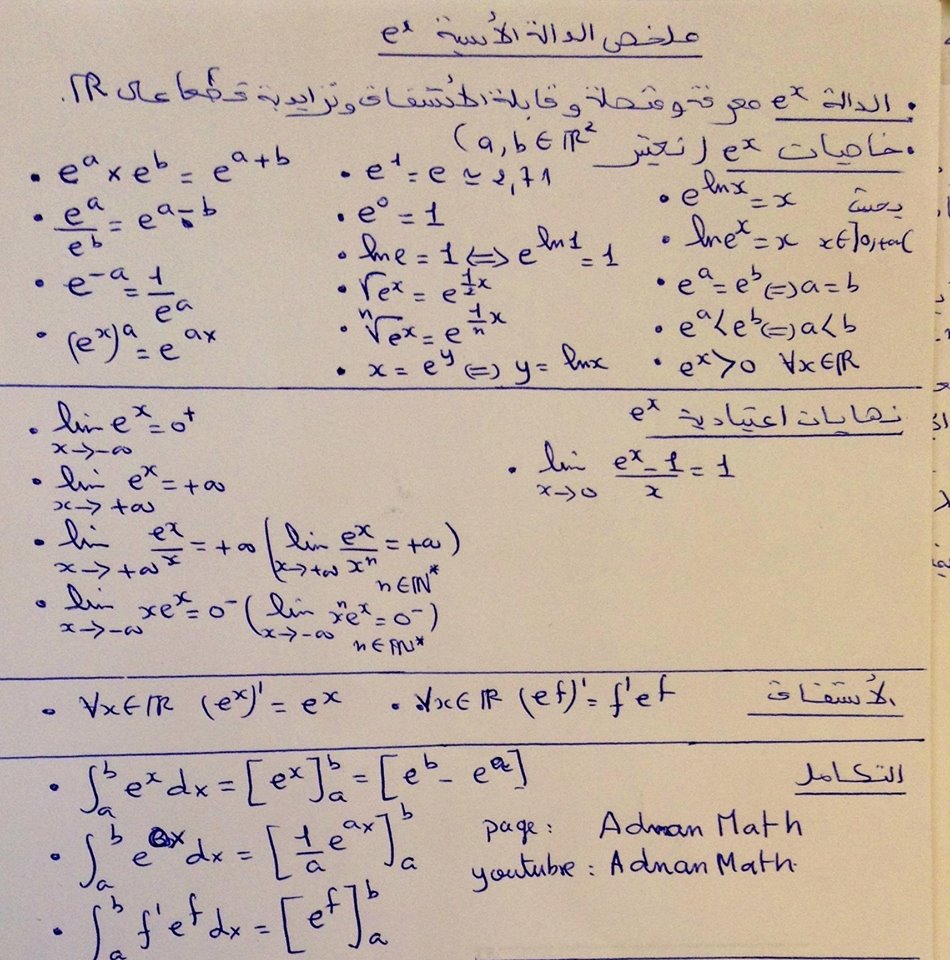 ملخص الدالة الأسية e^x
• الدالة e^x معرفة ومتصلة وقابلة للأشتقاق وتزايدية قطعا على ℝ.
• خاصيات e^x (نعتبر (a,b∈ℝ²
• e^a × e^b = e^{a+b}
• e^a/e^b = e^{a-b}
• e^{-a} = 1/e^a
• (e^x)^a = e^{ax}
• e^1 = e ≃ 2,71
• e^0 = 1
• ln e = 1 ⟺ e^{ln1} = 1
• √e^x = e^{1/2 x}
• ⁿ√e^x = e^{1/n x}
• x = e^y ⟺ y = lnx
• e^{lnx} = x بحيث
• ln e^x = x x∈]0,+∞(
• e^a = e^b ⟺ a = b
• e^a < e^b ⟺ a < b
• e^x > 0 ∀x∈ℝ
نهايات اعتيادية e^x
• lim_{x→-∞} e^x = 0^+
• lim_{x→+∞} e^x = +∞
• lim_{x→+∞} e^x/x = +∞ (lim_{x→+∞} e^x/x^n = +∞) n∈ℕ*
• lim_{x→-∞} xe^x = 0^- (lim_{x→-∞} x^n e^x = 0^-) n∈ℕ*
• lim_{x→0} (e^x - 1)/x = 1
الأشتقاق
• ∀x∈ℝ (e^x)' = e^x
• ∀x∈ℝ (e^f)' = f'e^f
التكامل
• ∫_a^b e^x dx = [e^x]_a^b = [e^b - e^a]
• ∫_a^b e^{ax} dx = [1/a e^{ax}]_a^b
• ∫_a^b f'e^f dx = [e^f]_a^b
page: Adnan Math
youtubre: Adnan Math